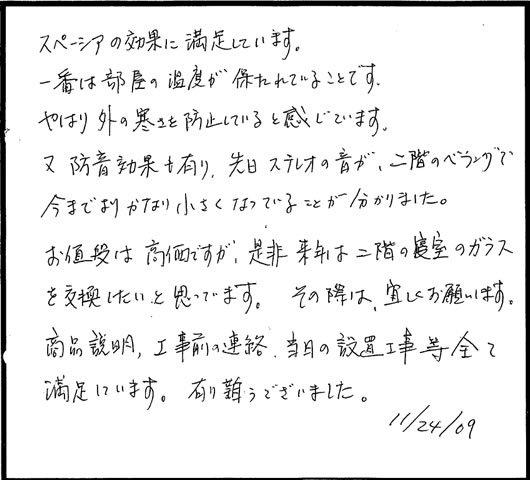 スペーシアの効果に満足しています。
一番は部屋の温度が保たれていることです。
やはり外の寒さを防止していると感じています。
又防音効果も有り、先日ステレオの音が、二階のベランダで
今までよりかなり小さくなっていることが分かりました。
お値段は高価ですが、是非来年は二階の寝室のガラス
を交換したいと思ってます。その際は、宜しくお願いします。
商品説明、工事前の連絡、当日の設置工事等全て
満足しています。有り難うございました。
11/24/09